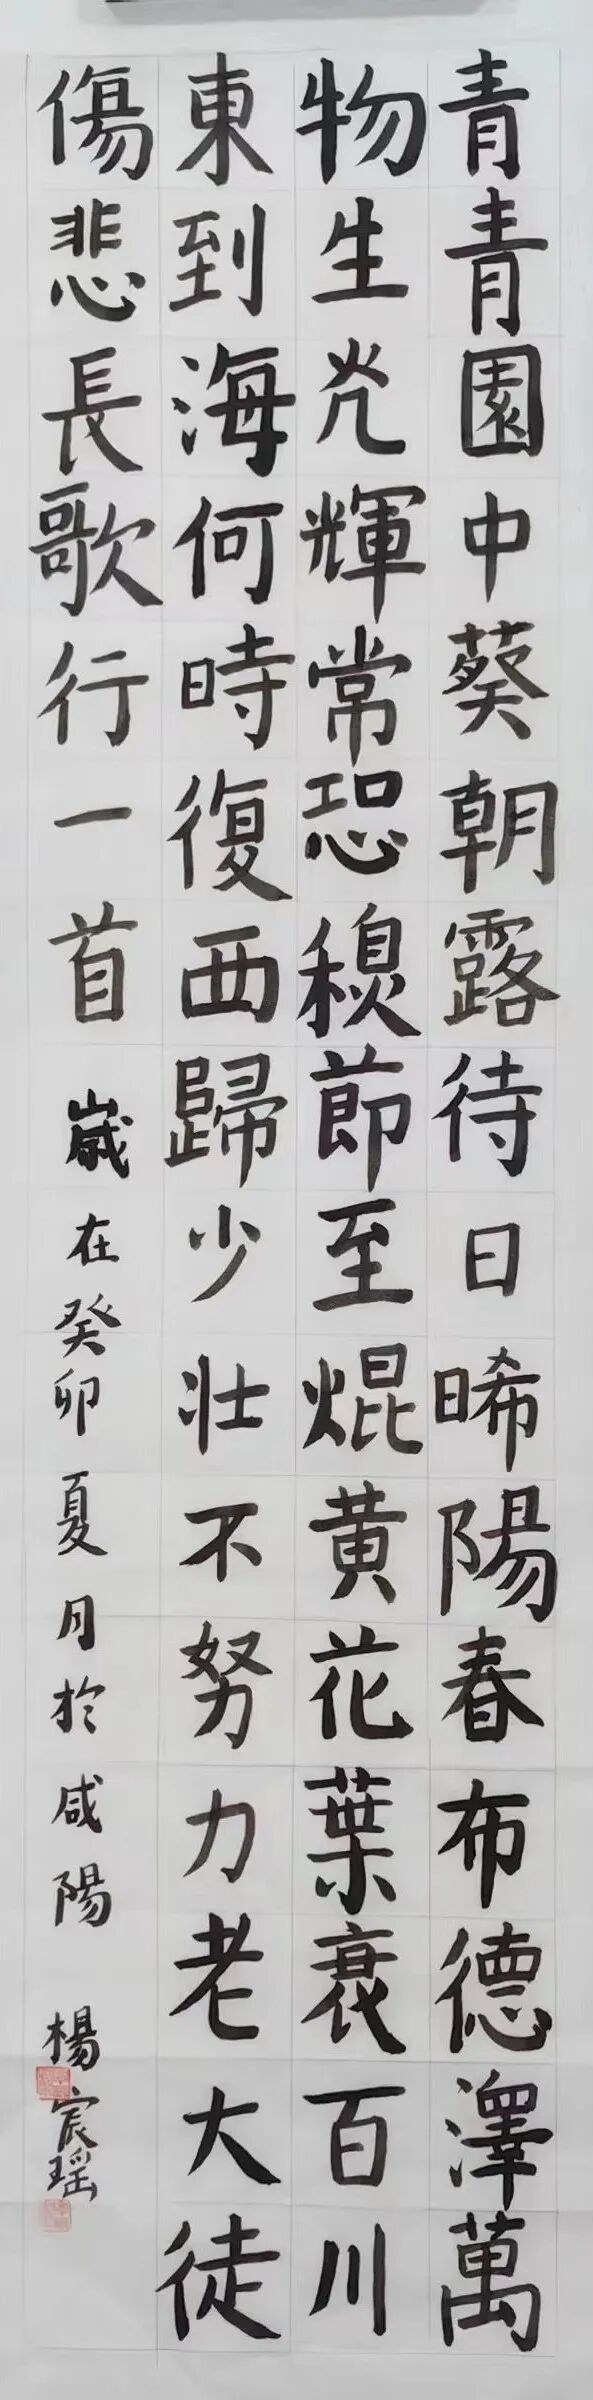 青青園中葵朝露待日晞陽春布德澤萬
物生光輝常恐秋節至焜黃花葉衰百川
東到海何時復西歸少壯不努力老大徒
傷悲長歌行一首
歲在癸卯夏月於咸陽 楊宸瑶